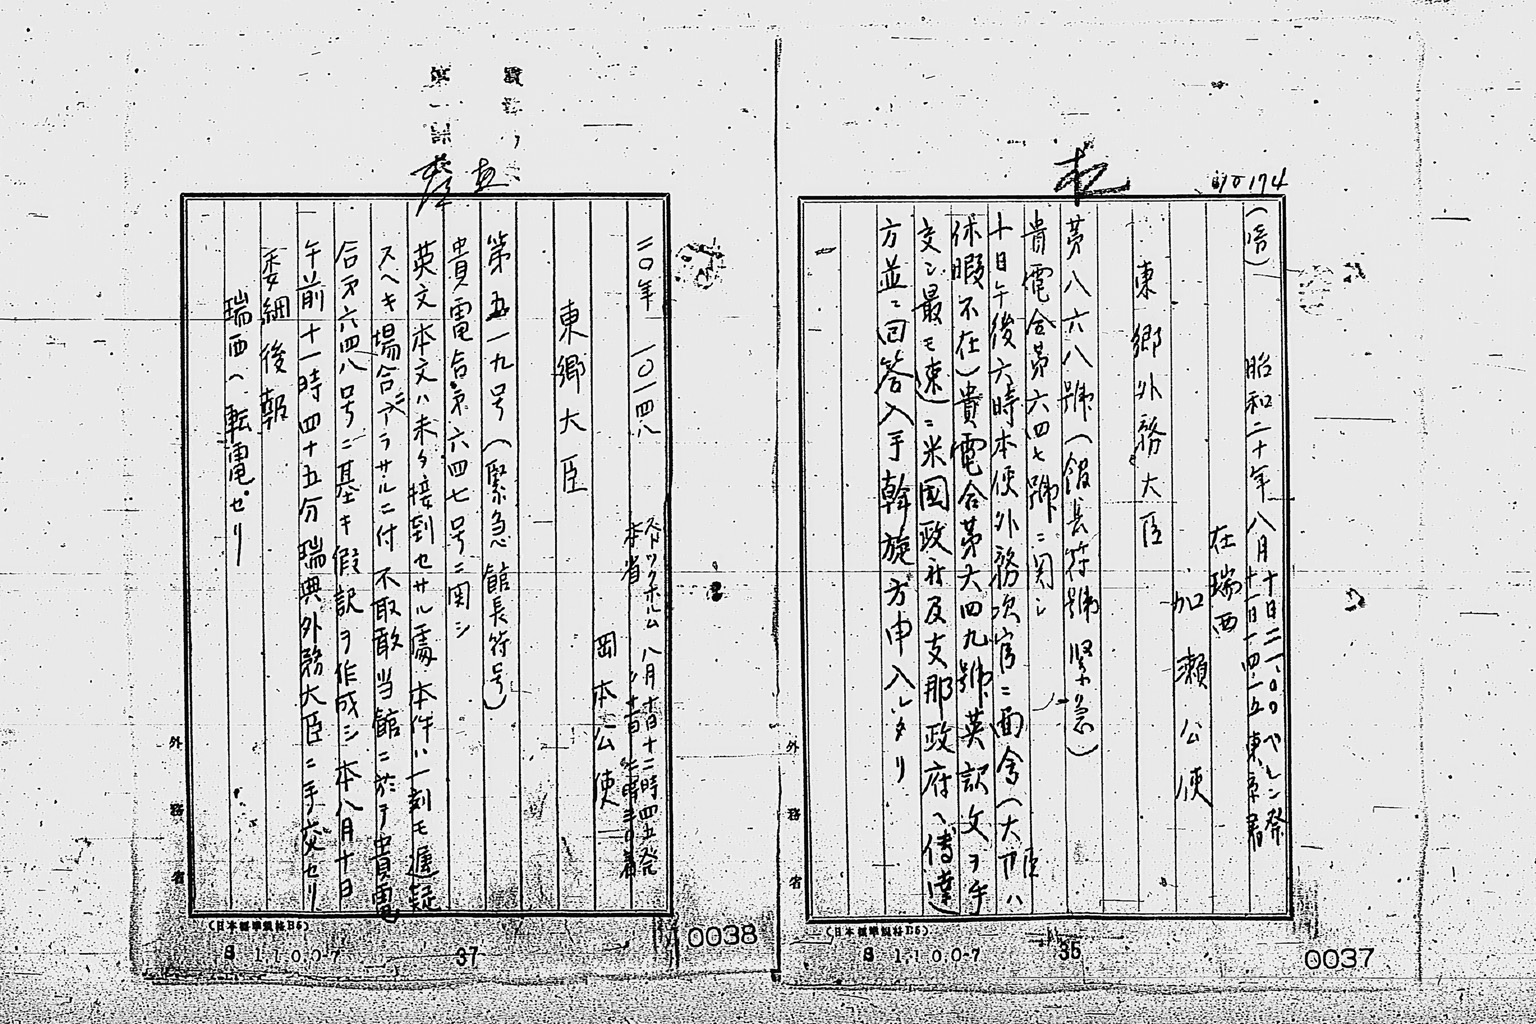 174
(暗)
昭和二十年 八月 十日二一、〇〇 ベルン発
十一日一四、一五 東京着
在瑞西
加瀬公使
東郷外務大臣
第八六八號(館長符號 緊急)
貴電合第六四七號ニ関シ
十日午後六時本使外務次官ニ面会(大臣ハ
休暇不在)貴電合第六四九號英訳文ヲ手
交シ最モ速ニ米國政府及支那政府ヘ傳達
方並ニ回答入手斡旋方申入レタリ
外務省
(日本標準規格B5)
S 1.1.0.0-7
36
0037
第一課
二〇年 一〇一四八
ストックホルム 八月十日十二時四五発
本省 〃十一日
岡本公使
東郷大臣
第五一九号(緊急 館長符号)
貴電合第六四七号ニ関シ
英文本文ハ未タ接到セサル處本件ハ一刻モ遅疑
スヘキ場合ニアラサルニ付不取敢当館ニ於テ貴電
合第六四八号ニ基キ假訳ヲ作成シ本八月十日
午前十一時四十五分瑞典外務大臣ニ手交セリ
委細後報
瑞西ヘ転電セリ
外務省
(日本標準規格B5)
S 1.1.0.0-7
37
0038